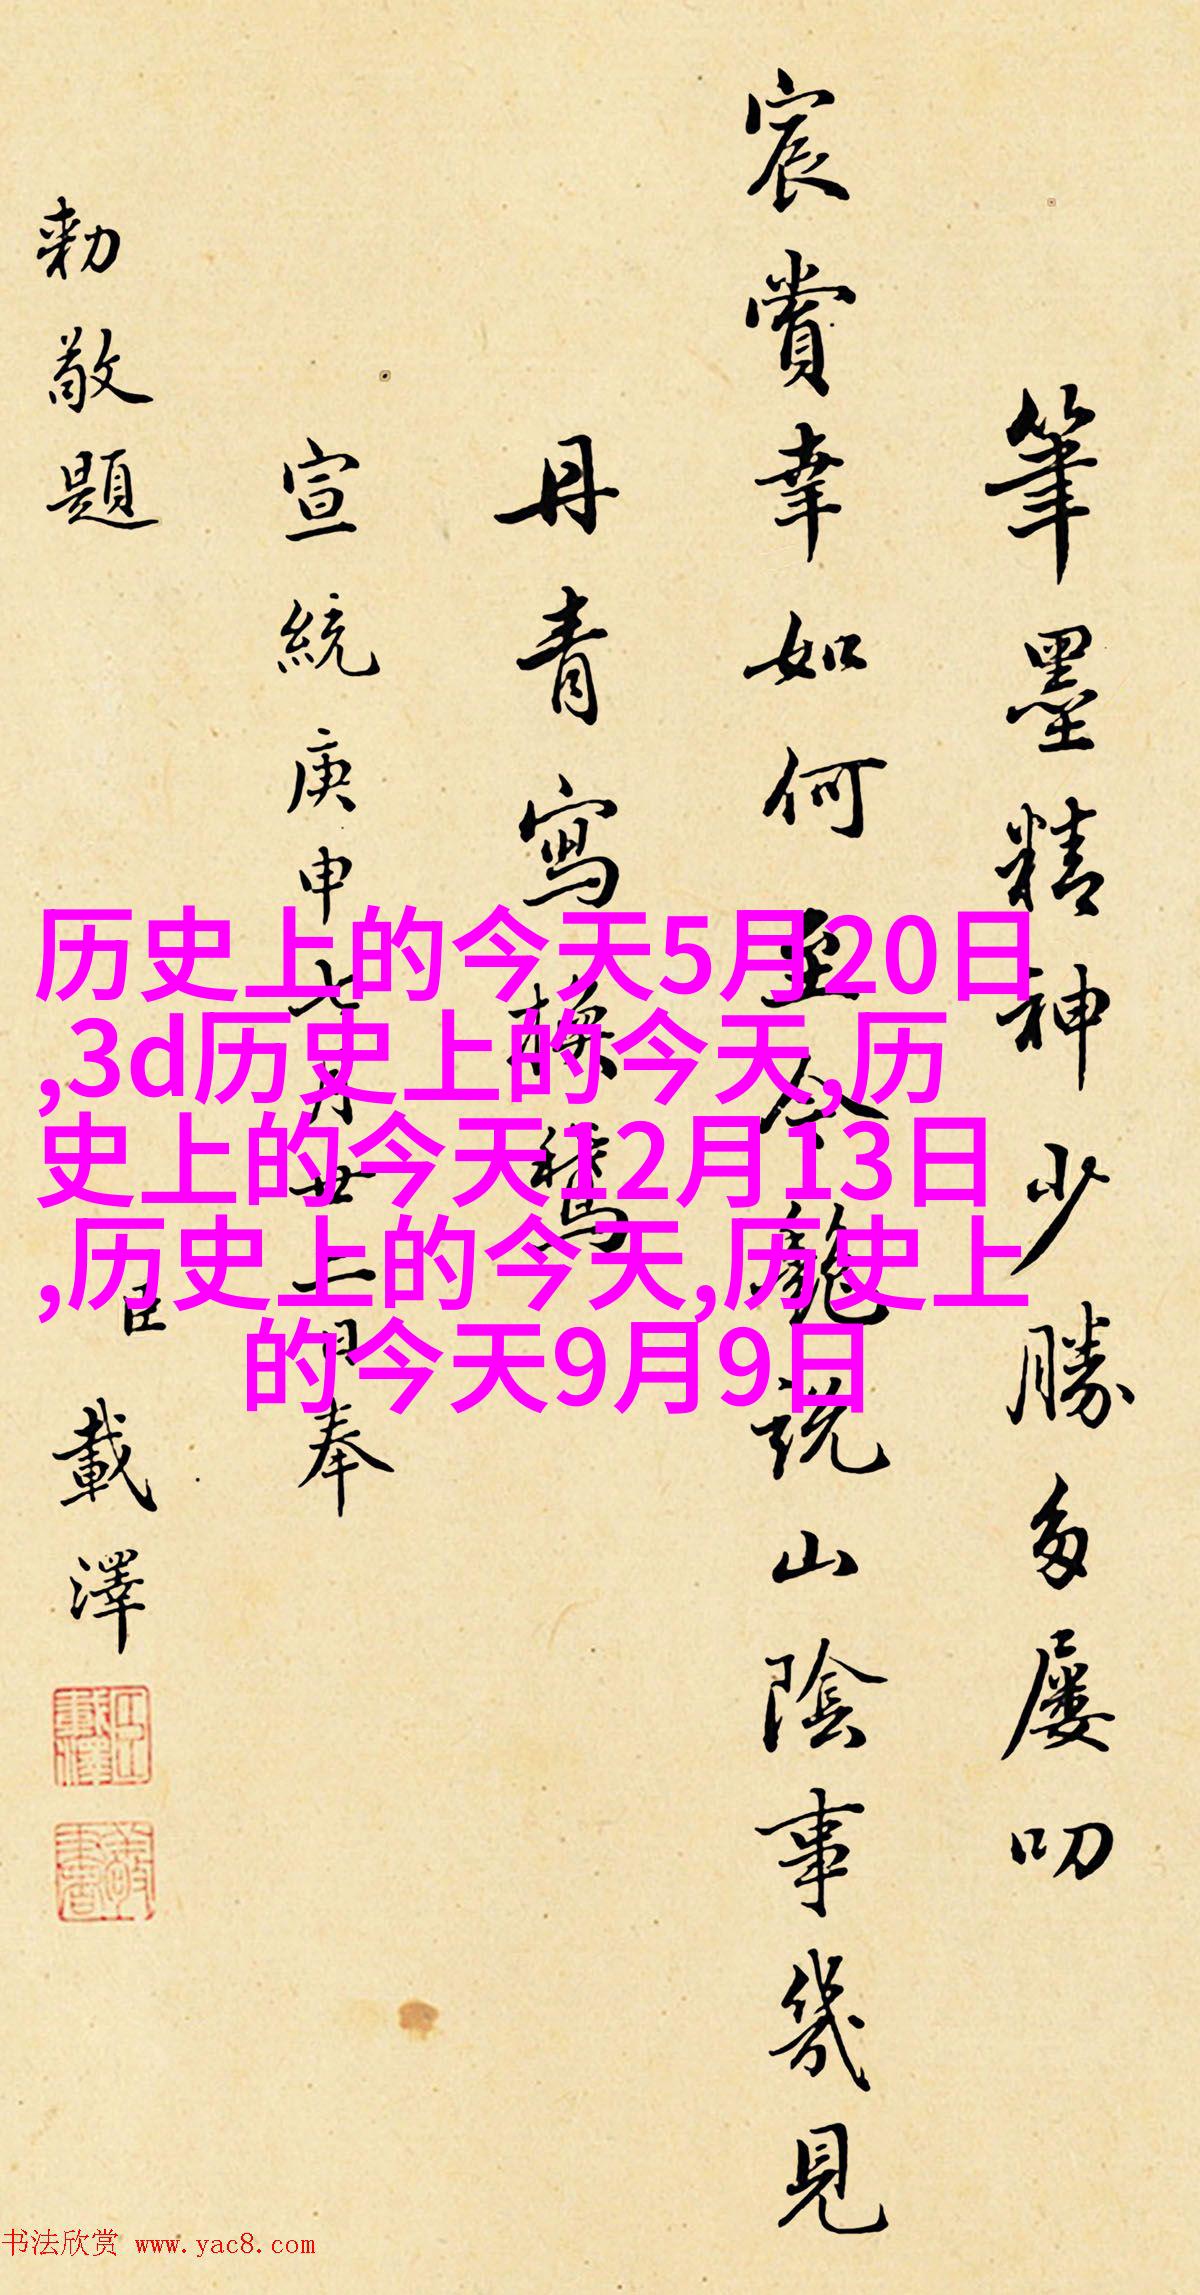 筆墨精神少勝多屢叨
宸賞幸如何至今說山陰事幾見
丹青寫換鵞
宣統庚申七月廿二日奉
勅敬題
臣載澤
历史上的今天5月20日
,3d历史上的今天,历
史上的今天12月13日
,历史上的今天,历史上
的今天9月9日
书法欣赏 www.yac8.com